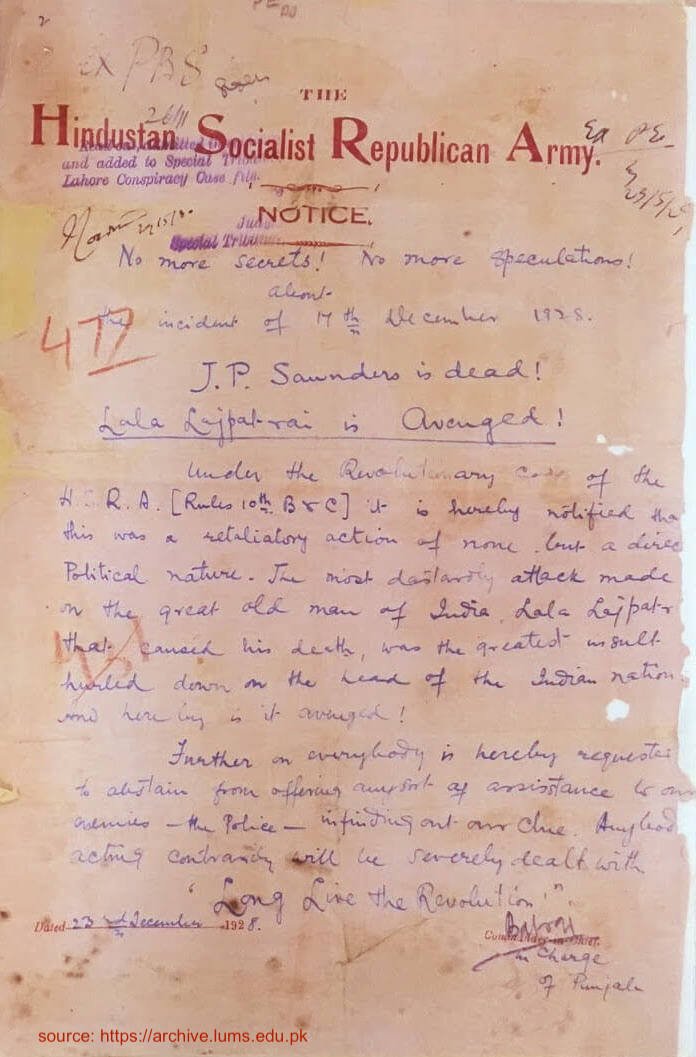 2
Ex PBS
THE
26/11
Hindustan Socialist Republican Army.
and added to Special
Lahore Conspiracy Case file.
Ex PE
23/5/29
NOTICE.
Special
No more secrets! No more speculations!
About
the incident of 17th December 1928.
477
J.P. Saunders is dead!
Lala Lajpat-rai is Avenged!
Under the Revolutionary code of the
H.S.R.A. [Rules 10th. B & C] it is hereby notified tha
this was a retaliatory action of none but a direc
Political nature. The most dastardly attack made
on the great old man of India, Lala Lajpat-r
that caused his death, was the greatest insult
hurled down on the head of the Indian nation
And hereby is it avenged!
Further on everybody is hereby requeste
to abstain from offering any sort of assistance to our
enemies — the Police — in finding out our clue. Anybod
acting contrarily will be severely dealt with
"Long Live the Revolution".
Dated 23rd December 1928.
Commander-in-Chief.
in Charge
of Punjab
source: https://archive.lums.edu.pk